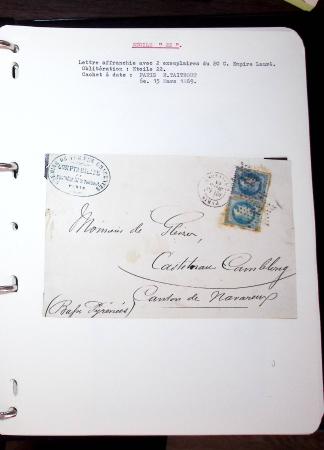 ETOILE " 22 ".
Lettre affranchie avec 2 exemplaires du 20 C. Empire Lauré.
Oblitération : Etoile 22.
Cachet à date : PARIS R.TAITBOUT
6e. 15 Mars 1869.
COMPTABILITÉ
PARIS
Monsieur de
Castelnau Camblong
Canton de Navarrenx
(Basses Pyrénées)